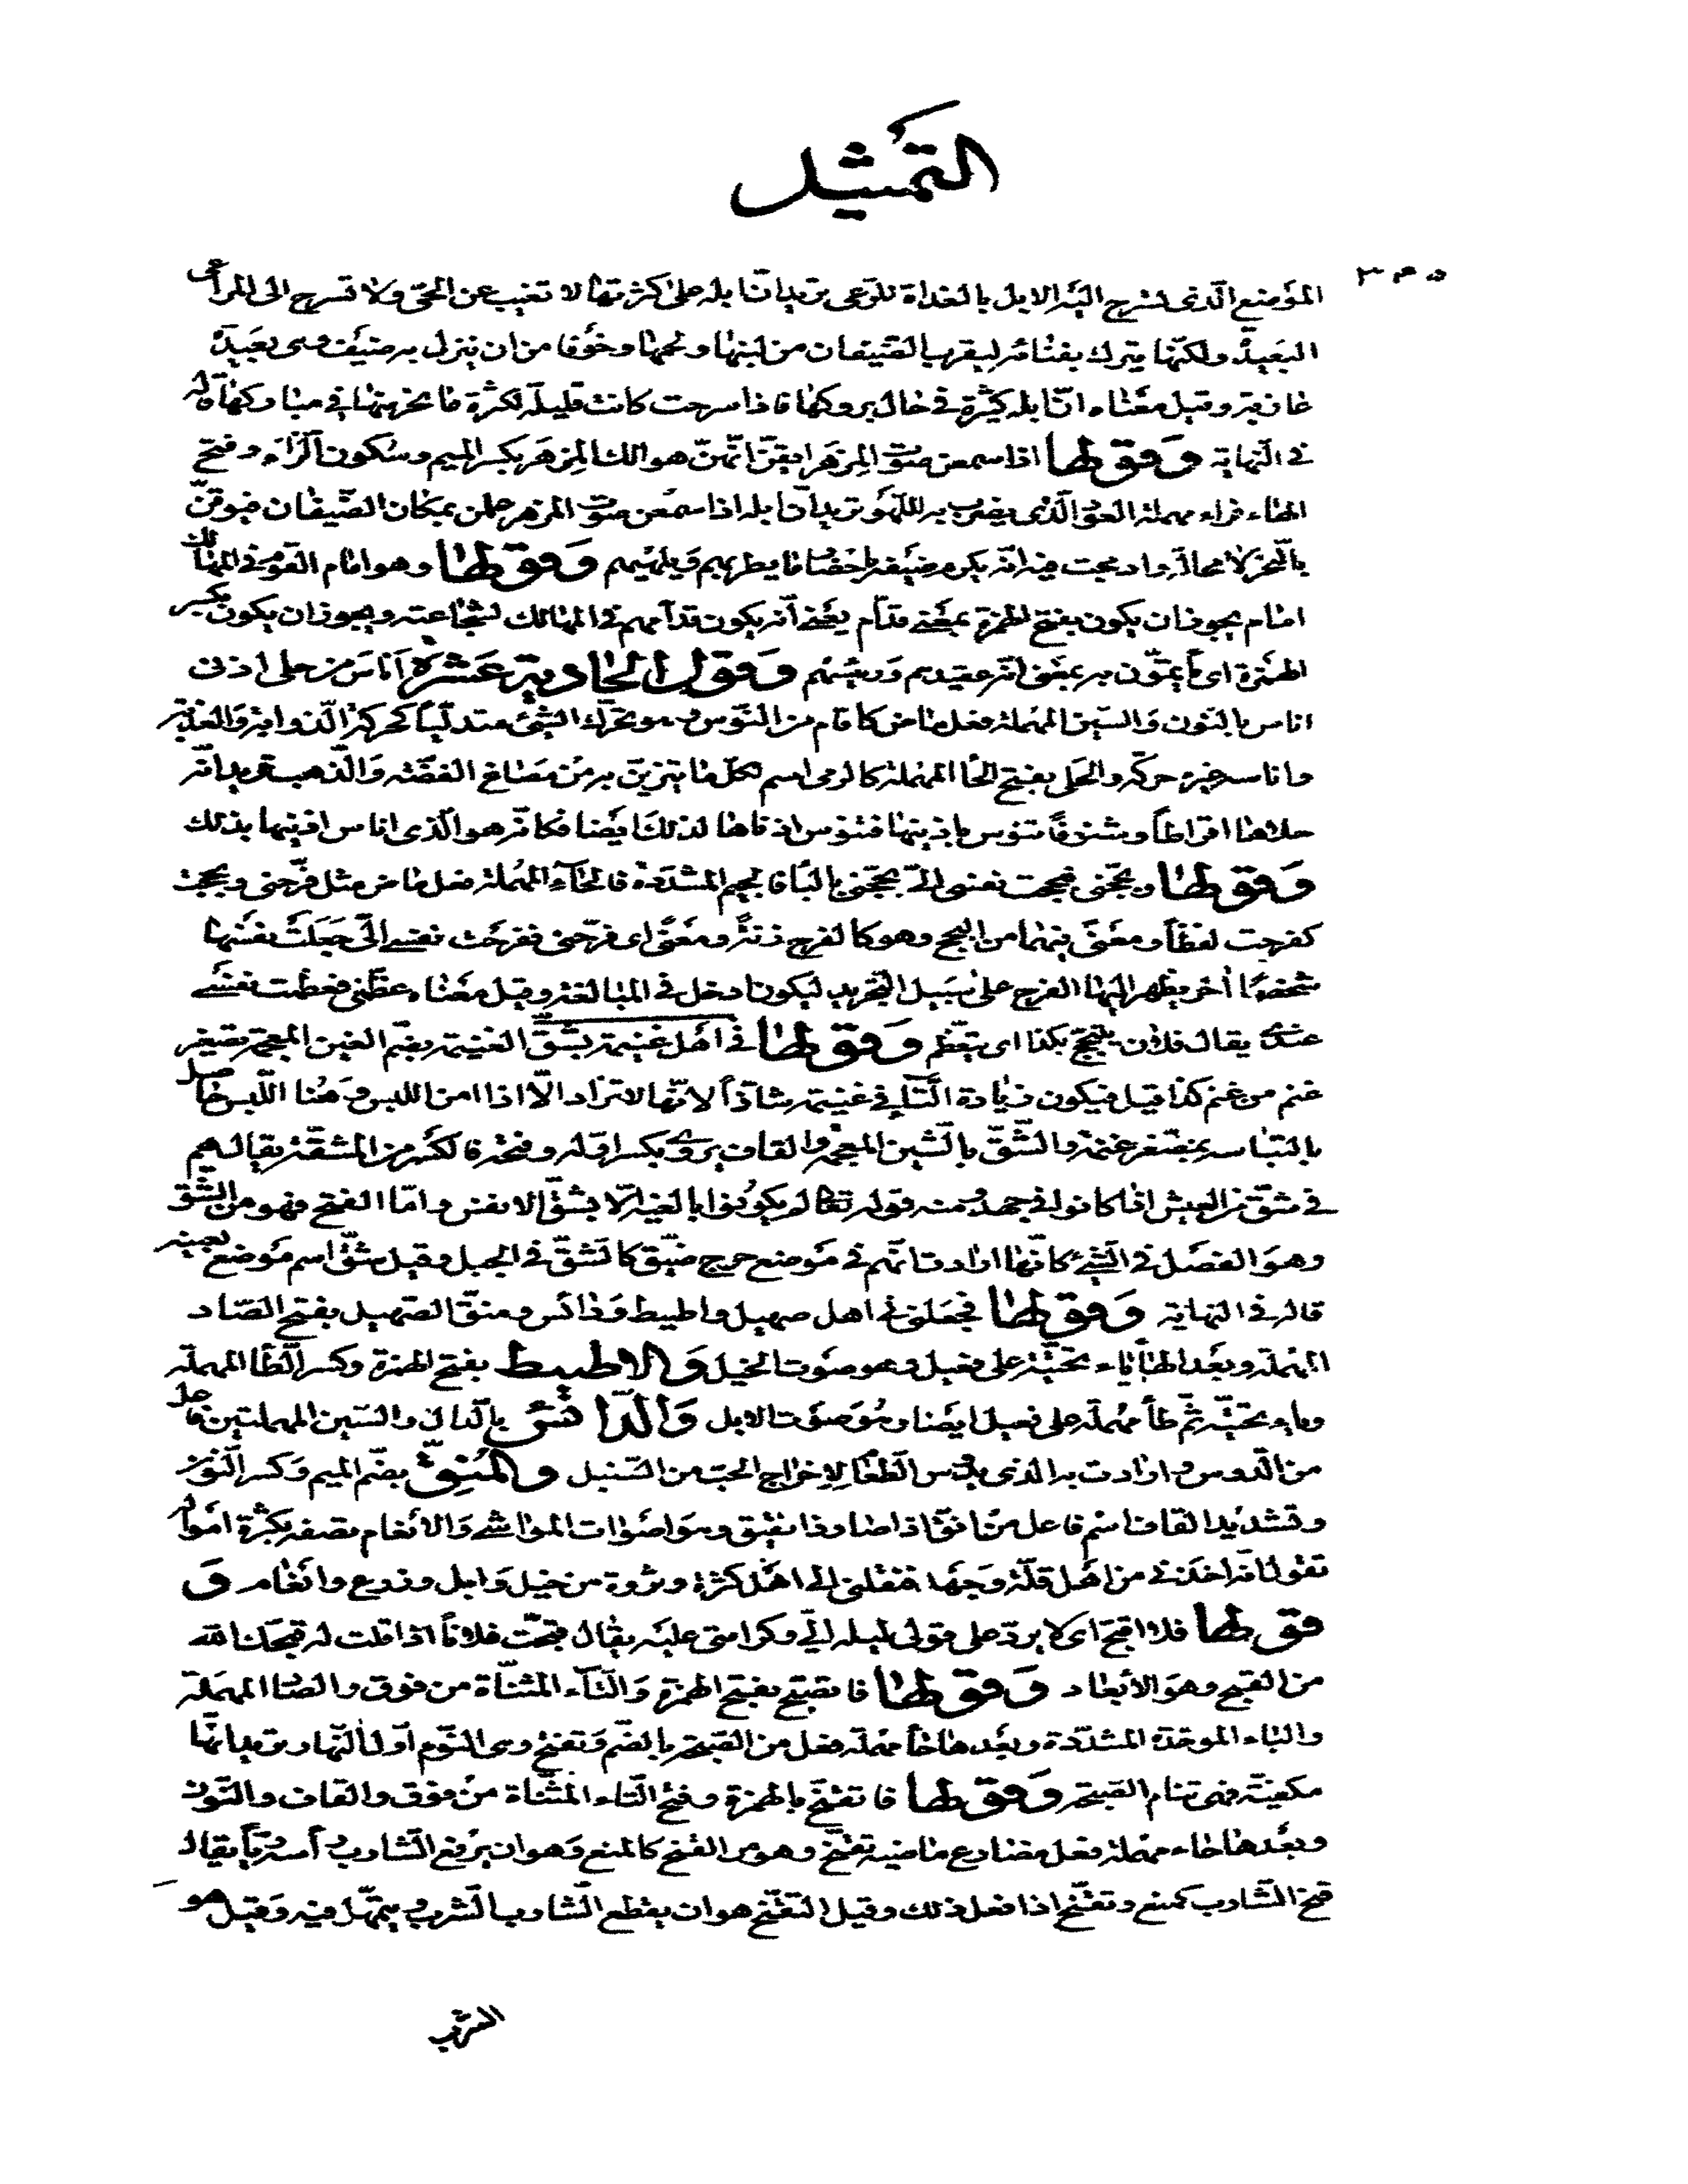 التمثيل
٣٠٥
الموضع الّذى تسرح اليه الابل بالغداة للرّعى تريد انّ ابله على كثرتها لا تغيب عن الحىّ ولا تسرح الى المراعى
البعيدة ولكنّها يترك بفنائه ليقرب الضّيفان من لبنها ولحمها وخوفا من ان ينزل به ضيف وهى بعيدة
غازبة وقيل معناه انّ ابله كثيرة فى حال بروكها فاذا سرحت كانت قليلة لكثرة ما نحر منها فى مباركها قاله
فى النّهاية وقولها اذا سمعن صوت المزهر ايقنّ انّهنّ هوالك المزهر بكسر الميم وسكون الزّاء وفتح
الهاء فراء مهملة العود الّذى يضرب به للّهو تريد انّ ابله اذا سمعن صوت المزهر بمكان الضّيفان فيوقنّ
بالنّحر لا محالة وادمجت فيه انّه يكرم ضيفه باحضار ما يطربهم ويلهيهم وقولها وهو امام القوم فى المهالك
امام يجوز ان يكون بفتح الهمزة بمعنى قدّام يعنى انّه يكون قدّامهم فى المهالك لشجاعته ويجوز ان يكون بكسر
الهمزة اى يأتمّون به بمعنى انّه عقيدهم ورئيسهم وقول الحادية عشرة اناس من حلى اذنى
اناس بالنّون والسّين المهملة فعل ماض كاقام من النّوس وهو تحرّك الشّئ متدلّيا كحركة الذّوابة والعذبة
واناسه غيره حركّه والحلى بفتح الحا المهملة كالرمى اسم لكلّ ما يتزيّن به من مصاغ الفضّة والذّهب تريد انّه
حلاها اقراطا وشنوفا تنوس باذنيها فتنوس اذناها لذلك ايضا فكانّه هو الّذى اناس اذنيها بذلك
وقولها وبجّحنى فبجحت نفسى الىّ بجّحنى بالبا فالجيم المشدّدة فالحآء المهملة فعل ماض مثل فرّحنى وبجحت
كفرحت لفظا ومعنى فيهما من البجح وهو كالفرح زنة ومعنى اى فرّحنى ففرحت نفسى الىّ جعلت نفسها
شخصا اخر يظهر اليها الفرح على سبيل التّجريد ليكون ادخل فى المبالغة وقيل معناه عظّمنى فعظمت نفسى
عندى يقال فلان يتبجّح بكذا اى يتعظّم وقولها فى اهل غنيمة بشقّ الغنيمة بضمّ الغين المعجمة تصغير
غنم من غنم كذا قيل فيكون زيادة التّا فى غنيمة شاذّا لانّها لا تزاد الّا اذا امن اللبس وهنا اللّبس حاصل
بالتباسه بمصغر غنمة والشّقّ بالشّين المعجمة والقاف يروى بكسر اوّله وفتحه فالكسر من المشقّة يقال هم
فى شقّ من العيش اذا كانوا فى جهد ومنه قوله تعالى لم يكونوا بالغيه الّا بشقّ الانفس وامّا الفتح فهو من الشّق
وهو الفصل فى الشئ كانّها ارادت انّهم فى موضع حرج ضيّق كالشّقّ فى الجبل وقيل شقّ اسم موضع بعينه
قاله فى النهاية وقولها فجعلنى فى اهل صهيل واطيط ودائس ومنقّ الصّهيل بفتح الصّاد
المهملة وبعد الهأ ياء تحتيّة على فعيل وهو صوت الخيل والاطيط بفتح الهمزة وكسر الطّا المهملة
وياء تحتيّة ثمّ طأ مهملة على فعيل ايضا وهو صوت الابل والدّائس بالدّال والسّين المهملتين فاعل
من الدّوس وارادت به الذى يدوس الطّعام لاخراج الحبّ من السّنبل والمنقّ بضمّ الميم وكسر النّون
وتشديد القاف اسم فاعل من انقّ اذا صار ذا نقيق وهو اصوات المواشى والانعام تصفه بكثرة امواله
تقول انّه اخذنى من اهل قلّة وجهد فنقلنى الى اهل كثرة وثروة من خيل وابل وزروع وانعام و
قولها فلا اقبّح اى لا يردّ على قولى لميله الىّ وكرامتى عليه يقال قبّحت فلانا اذا قلت له قبّحك الله
من القبح وهو الابعاد وقولها فاتصبّح بفتح الهمزة والتّآء المثنّاة من فوق والصّا المهملة
والباء الموحّدة المشدّدة وبعدها حأ مهملة فعل من الصّبحة بالضّم وتفتح وهى النّوم اوّل النّهار تريد انّها
مكفيّة فهى تنام الصّبحة وقولها فاتقنّح بالهمزة وفتح التّاء المثنّاة من فوق والقاف والنّون
وبعدها حاء مهملة فعل مضارع ماضيه تقنّح وهو من القنح كالمنع وهو ان يرفع الشّارب رأسه ريّا يقال
قنح الشّارب كمنع وتقنّح اذا فعل ذلك وقيل التقنّح هو ان يقطع الشّارب الشّرب ويتمهّل فيه وقيل هو
الشّرب